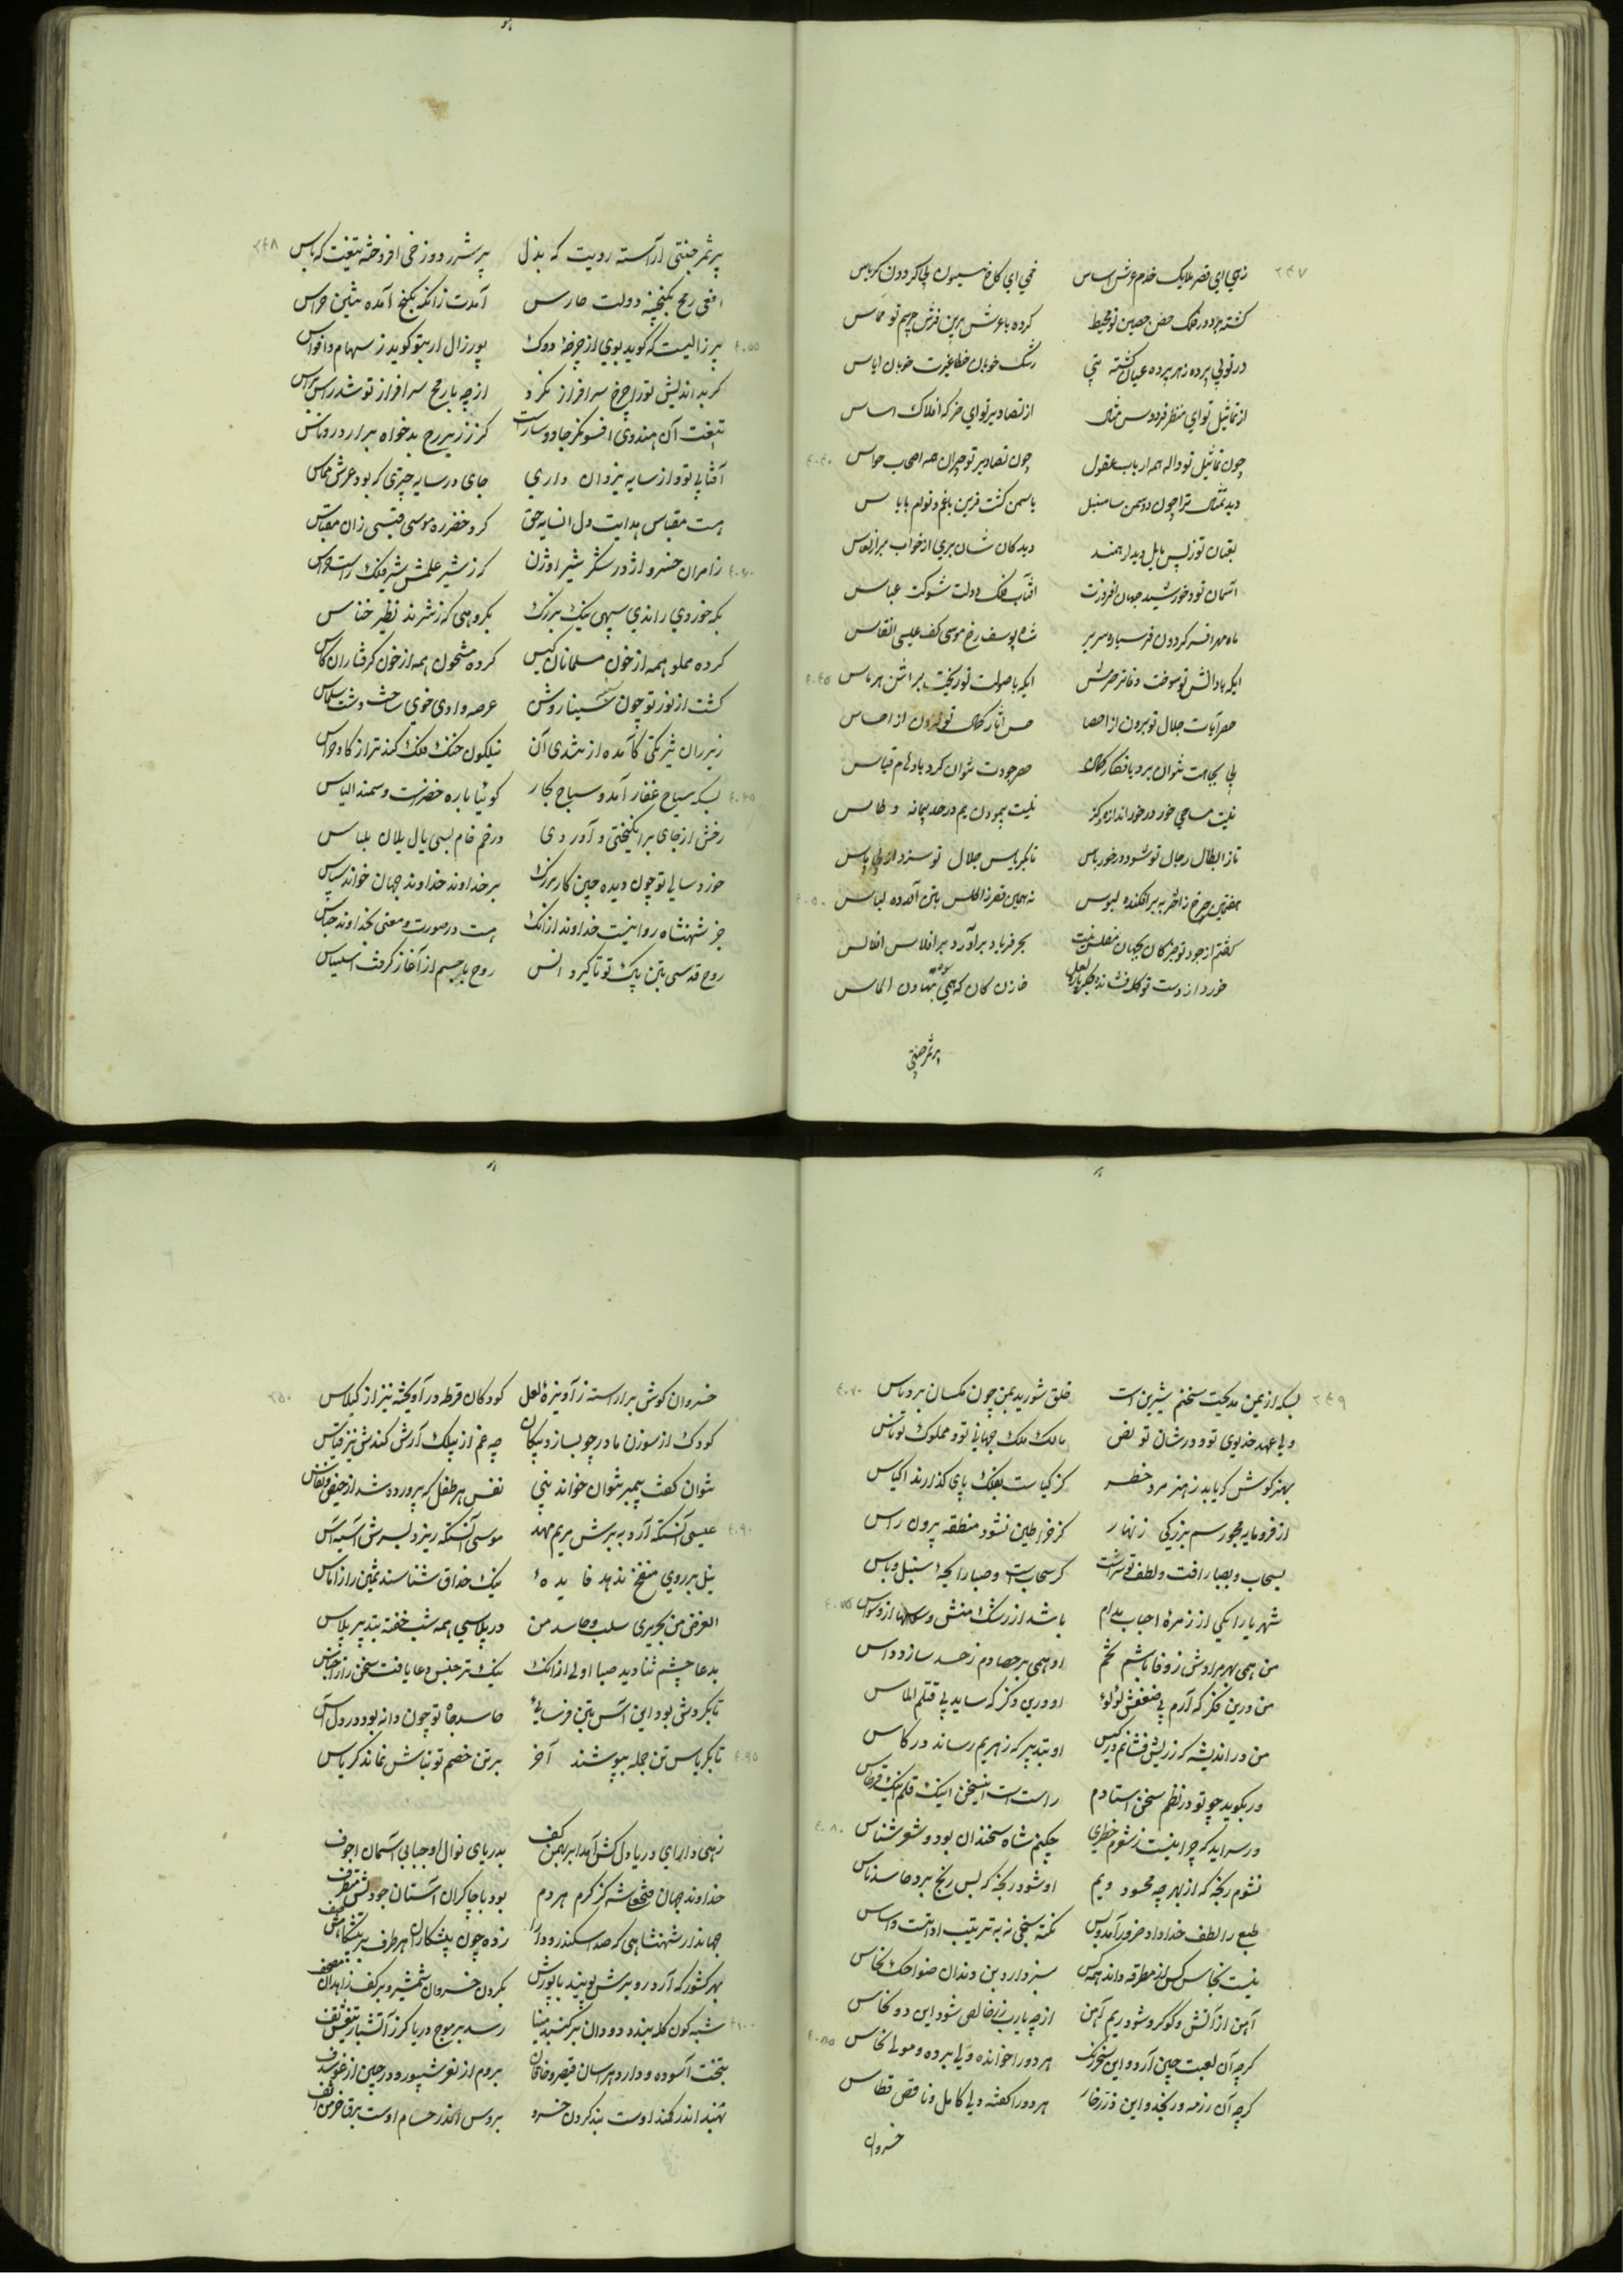 ۲۴۷
زهی ای قصر ملایک خدم عرش اساس خهی ای کاخ بی کردون کریاس
کشته بر دور فلک حصن حصین تو محیط کرده با عرش برین فرش حریم تو مماس
در تو بی پرده ز هر پرده عیان کشته بتی رشک خوبان خطا غیرت خوبان ایاس
از تماثیل تو ای منظر فردوس مثال از تصاویر تو ای خرکه افلاک اساس
چون تماثیل تو واله همه ارباب عقول چون تصاویر تو حیران همه اصحاب حواس ۴۰۴۰
دید تمثال ترا چون دو سمن سا سنبل یاسمن کشت قرین با غم و توام با یاس
لعبتان تو ز بس مایل دیدار همند دیدکان شان بری از خواب مبرا ز نعاس
آسمان تو و خورشید جهان افروزت آفتاب فلک دولت شوکت عباس
ماه مهر افسر کردون فر سیاره سریر شاه یوسف رخ موسی کف عیسی انفاس
ایکه با دانش تو سوخت دفاتر هرمس ایکه با صولت تو ریخت براثن هرماس ۴۰۴۵
حصر آیات جلال تو برون از احصا حس آثار کمال تو برون از احساس
پی بجاهت نتوان برد بافکار کمال حصر جودت نتوان کرد باوهام قیاس
نیست مساحی خور در خور اندازه کز نیست پیمودن یم در حد پیمانه و طاس
تا ز ابطال رجال تو شود در خور باس تا بکریاس جلال تو سزد از پی پاس
هفتمین چرخ ز اختر به بر افکنده لبوس نهمین قصر ز اطلس بتن آمده لباس ۴۰۵۰
کفتم از جود تو جز کان بجهان مفلس نیست بحر فریاد برآورد بر افلاس افلاس
خورد از دست تو خازن کان که همی بهاون الماس
پر ثمر جنتی
۲۴۸
پر ثمر جنتی آراسته رویت که بذل پر شرر دوزخی افروخته تیغت که باس
افعی رمح بکنجینه دولت حارس آمدت زانکه بکنج آمده تنین حراس
پیر زالیست که کوید بوی از چرخه دوک پور زال ار بتو کوید ز سهام و اقواس ۴۰۵۵
کر بد اندیش تو را چرخ سرافراز نکرد از چه با رمح سرافراز تو شد راس براس
تیغت آن هندوی افسونکر جادوسارت کز زریر رخ بدخواه برآرد روناس
آفتابی تو و از سایه یزدان داری جای در سایه چتری که بود عرش مماس
هست مقباس هدایت دل انسایه حق کرد خضر ره موسی قبسی زان مقباس
زامران خسرو اژدر شکر شیر اوژن کز شیر علمش شیر فلک راست هراس ۴۰۶۰
بکه خوردی راندی سپهی نیک بزرک بکروهی که ز شرند نظیر خناس
کرده مملو همه از خون مسلمانان کیس کرده مشحون همه از خون کرفتاران کاس
کشت از نور تو چون سینا روشن عرصه وادی خوی ساحت دشت سلماس
زیر ران شرکی کآمده از تندی آن نیلکون خنک فلک کندتر از کاو خراس
بسکه سیاح قفار آمد و سباح بحار کوئیا باره خضرست و سمند الیاس ۴۰۶۵
رخش از جای برانکیختی و آوردی در خم خام بسی یال یلان بلباس
خورد سالی تو چون دیده چنین کار بزرک بر خداوند خداوند جهان خواند سپاس
جز شهنشاه روا نیست خداوند ازانک هست در صورت و معنی بخداوند جناس
روح قدسی بتن پاک تو تا کیرد انس روح با جسم از آغاز کرفت استیناس
۲۴۹
بسکه از یمن مدیحت سخنم شیرین است خلق شورید بمن چون مکسان بر دباس ۴۰۷۰
ولی عهد خدیوی تو و در شان تو نص مالک ملک جهانی تو و مملوک تو ناس
بهنر کوش که یابد ز هنر مرد خطر کز کیاست بفلک پای کذارند اکیاس
از فرومایه مجو رسم بزرکی زنهار کز خراطین نشود منطقه بیرون راس
بسحاب و بصبا رافت و لطف تو سرشت کر سحابست و صبا رابحه سنبل و یاس
شهریارا یکی از زمره احباب مدام باشد از رشک منش وسوسها از وسواس ۴۰۷۵
من همی بهر مرادش ز وفا پاشم تخم او همی بر حصادم ز حسد سازد داس
من درین فکر که آرم پی ضعفش لؤلؤ او درین ذکر که ساید پی قتلم الماس
من در اندیشه که زر پیش فشانم در کیس او بتدبیر که زهریم رساند در کاس
ور بکوید چو تو در نظم سخن استادم راست است اینسخن اینک قلم اینک قرطاس
ور سراید که چرا نیست ز شعرم خطری چکنم شاه سخندان بود و شعر شناس ۴۰۸۰
نشوم رنجه که از بهر چه محسود ویم او شود رنجه که بس رنج برد حاسد ناس
طبع را لطف خداداد ضرور آمد و بس نکته سنجی نه به ترتیب اداتست و اساس
نیست نخاس کس از مطرقه داند همه کس سبز دارد بن دندان ضواحک نخاس
آهن از آتش و کوکرد شود ریم آهن از چه یا رب زر خالص شود این دو نحاس
کرچه آن لعبت چین آرد و این سخره زنک هر دو را خوانده ولی برده و مولی نخاس ۴۰۸۵
کرچه آن رزمه ور کنجد و این در زخار هر دو را کفته ولی کامل و ناقص قطاس
خسروان
۲۵۰
خسروان کوش برآراسته ز آویزه لعل کودکان قرطه درآویخته نیز از کیلاس
کودک از سوزن مادر چو بسازد پیکان چه غم از بیلک آرش کندش نیز قیاس
نتوان کفت پیمبر نتوان خواند نبی نفس هر طفل که پرورده شد از حیض و نفاس
عیسی آنستکه آرد به برش مریم مهد موسی آنستکه ریزد بسرش آسیه آس ۴۰۹۰
نیل بر روی منقح ندهد فایده نیک حذاق شناسند ثمین را ز اناس
الغرض من بحریری سلب و حاسد من در پلاسی همه شب خفته بتدبیر پلاس
بدعا چشم ثنا دید صبا اولی ازانک نیکتر جنس دعا یافت سخن را ز اجناس
تا بکردش بود این آس بتن فرسائی حاسد جاه تو چون دانه بود در دل آس
تا بکرباس تن جمله بپوشند آخر بر تن خصم تو نباش نماند کرباس ۴۰۹۵
زهی دارای دریادل کش آمد ابر بهمن کف بدریای نوال او حبابی آسمان اجوف
خداوند جهان فتحعلیشه کز کرم هر دم بود با چاکران آستان جودش
جهاندار شهنشاهی که صد اسکندر و دارا زده چون پیشکاران هر طرف در پیشکاهش صف
بهر کشور که آرد رو برش پویند با پوزش بکردن خسروان شمشیر و بر کف زاهدان مصحف
شبه کون کله بندد دود آن بر کنبد مینا رسد بر موج دریا کر ز آتشبار تیغش تف ۴۱۰۰
بتخت آسوده و دارد هراسان قیصر و خاقان بروم از نفر شیپور و در چین از غو
تهند اندر کمند اوست بند کردن خسرو بروس اندر حسام اوست برق خرمن